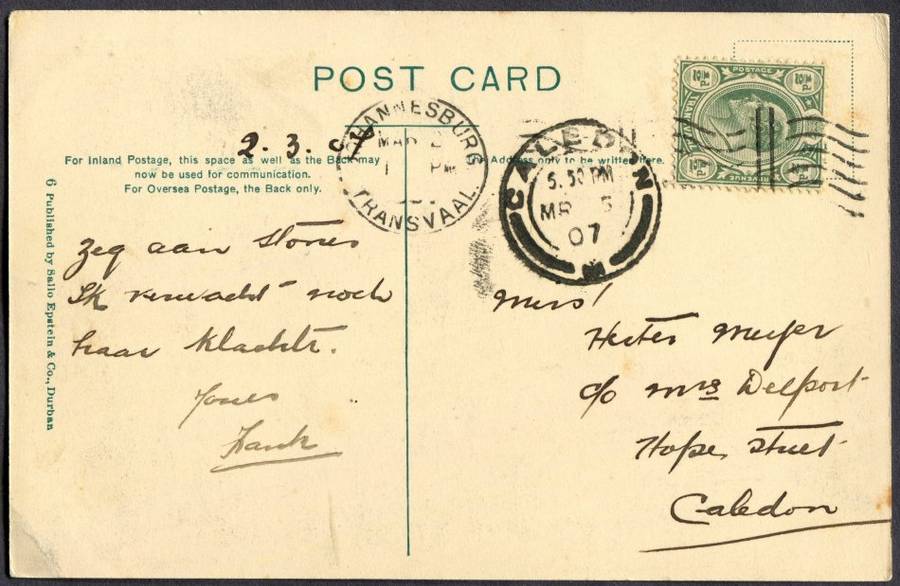 POST CARD
2.3.07
For Inland Postage, this space as well as the Back may
now be used for communication.
For Oversea Postage, the Back only.
The Address only to be written here.
JOHANNESBURG
MAR
PM
TRANSVAAL
CALEDON
5.50 PM
MR 5
07
POSTAGE
REVENUE
TRANSVAAL
6 Published by Sallo Epstein & Co., Durban
Zeg aan Stories
Ik verwacht noch
haar Klachte.
Yours
Hank
Miss!
Hester Meyer
c/o Mrs Delport
Hope Street
Caledon